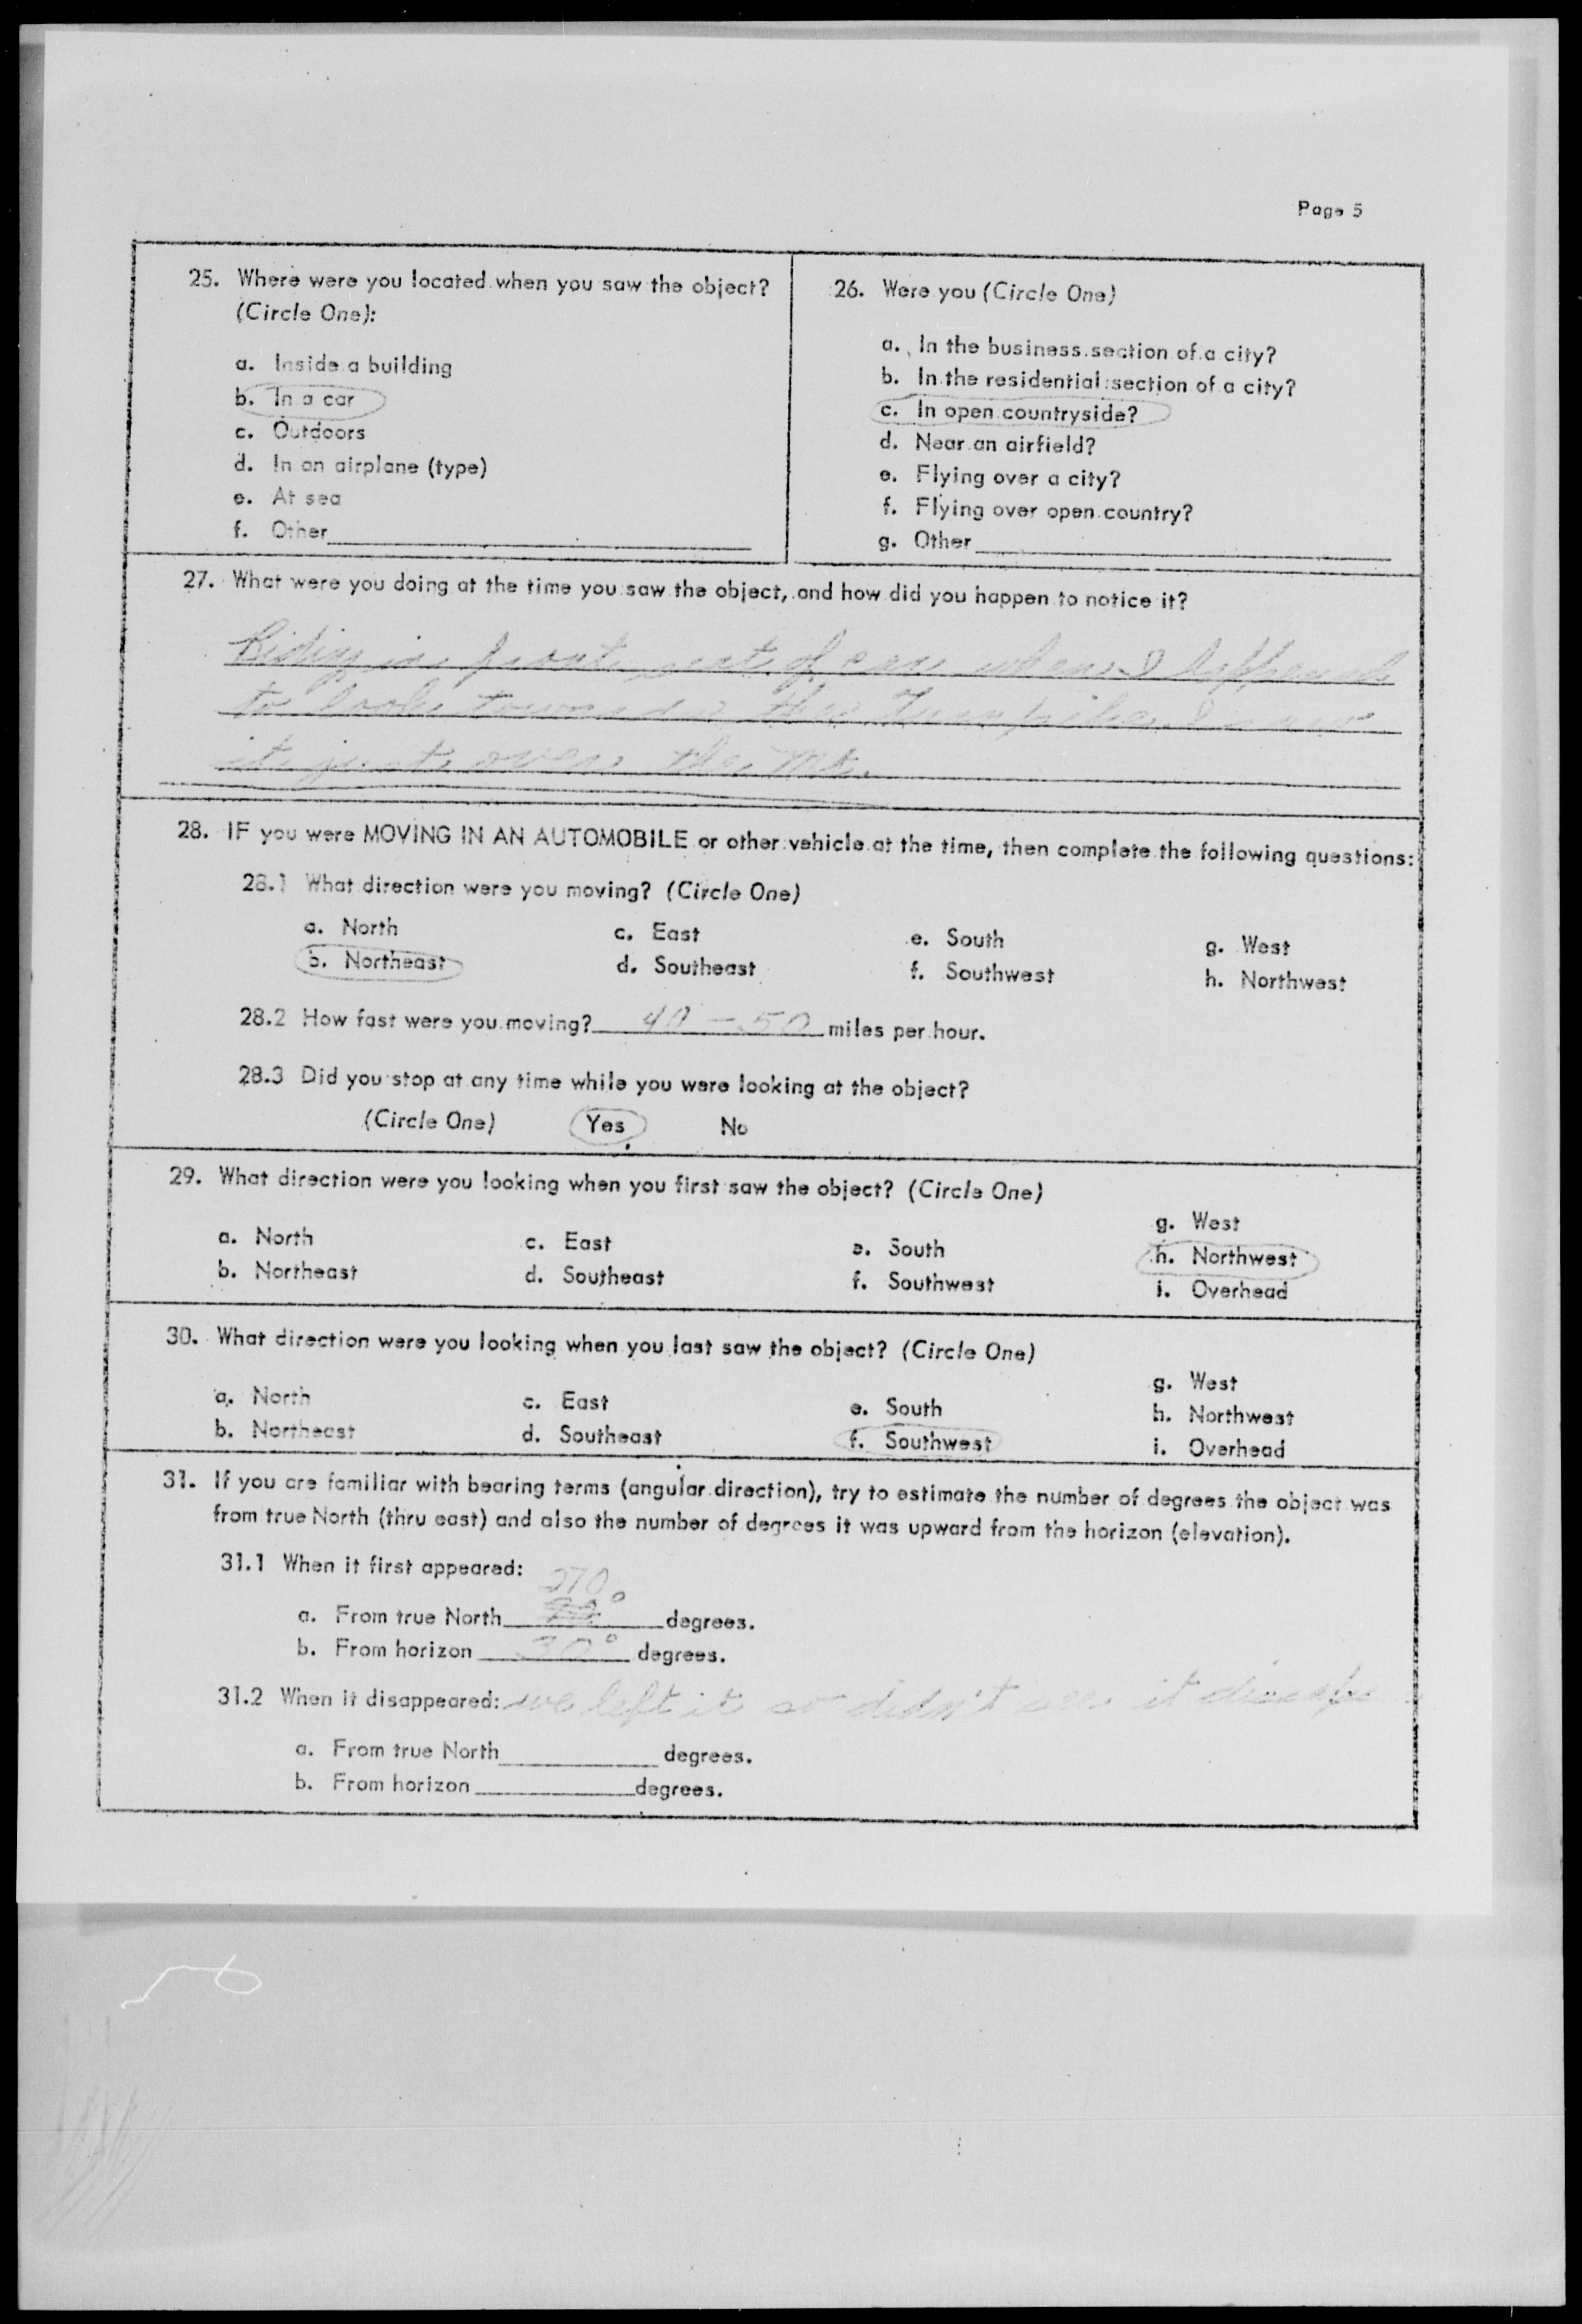 Page 5
25. Where were you located when you saw the object?
(Circle One):
a. Inside a building
b. In a car
c. Outdoors
d. In an airplane (type)
e. At sea
f. Other
26. Were you (Circle One)
a. In the business section of a city?
b. In the residential section of a city?
c. In open countryside?
d. Near an airfield?
e. Flying over a city?
f. Flying over open country?
g. Other
27. What were you doing at the time you saw the object, and how did you happen to notice it?
Riding in front seat of car when I happened
to look towards the Turnpike I saw
it just over the Mt.
28. IF you were MOVING IN AN AUTOMOBILE or other vehicle at the time, then complete the following questions:
28.1 What direction were you moving? (Circle One)
a. North c. East e. South g. West
b. Northeast d. Southeast f. Southwest h. Northwest
28.2 How fast were you moving? 40 - 50 miles per hour.
28.3 Did you stop at any time while you were looking at the object?
(Circle One) Yes No
29. What direction were you looking when you first saw the object? (Circle One)
a. North c. East e. South g. West
b. Northeast d. Southeast f. Southwest h. Northwest
i. Overhead
30. What direction were you looking when you last saw the object? (Circle One)
a. North c. East e. South g. West
b. Northeast d. Southeast f. Southwest h. Northwest
i. Overhead
31. If you are familiar with bearing terms (angular direction), try to estimate the number of degrees the object was
from true North (thru east) and also the number of degrees it was upward from the horizon (elevation).
31.1 When it first appeared:
270°
a. From true North degrees.
b. From horizon 30° degrees.
31.2 When it disappeared: we left it so didn't see it
a. From true North degrees.
b. From horizon degrees.